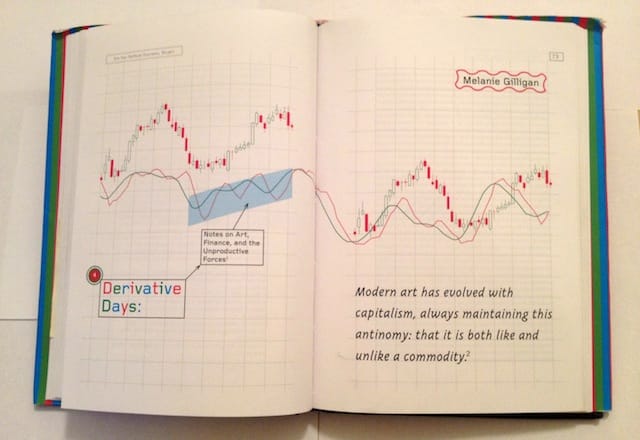 73
Melanie Gilligan
Notes on Art,
Finance, and the
Unproductive
Forces¹
4
Derivative
Days:
Modern art has evolved with
capitalism, always maintaining this
antinomy: that it is both like and
unlike a commodity.²